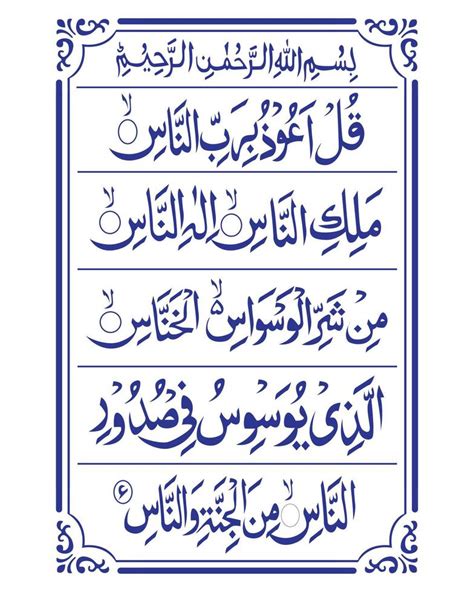 بِسْمِ اللهِ الرَّحْمٰنِ الرَّحِيْمِ
قُلْ اَعُوْذُ بِرَبِّ النَّاسِۙ○
مَلِكِ النَّاسِۙ○ اِلٰهِ النَّاسِۙ○
مِنْ شَرِّ الْوَسْوَاسِ ۙ٥ الْخَنَّاسِۙ○
الَّذِىْ يُوَسْوِسُ فِىْ صُدُوْرِ
النَّاسِۙ○ مِنَ الْجِنَّةِ وَالنَّاسِ ۶